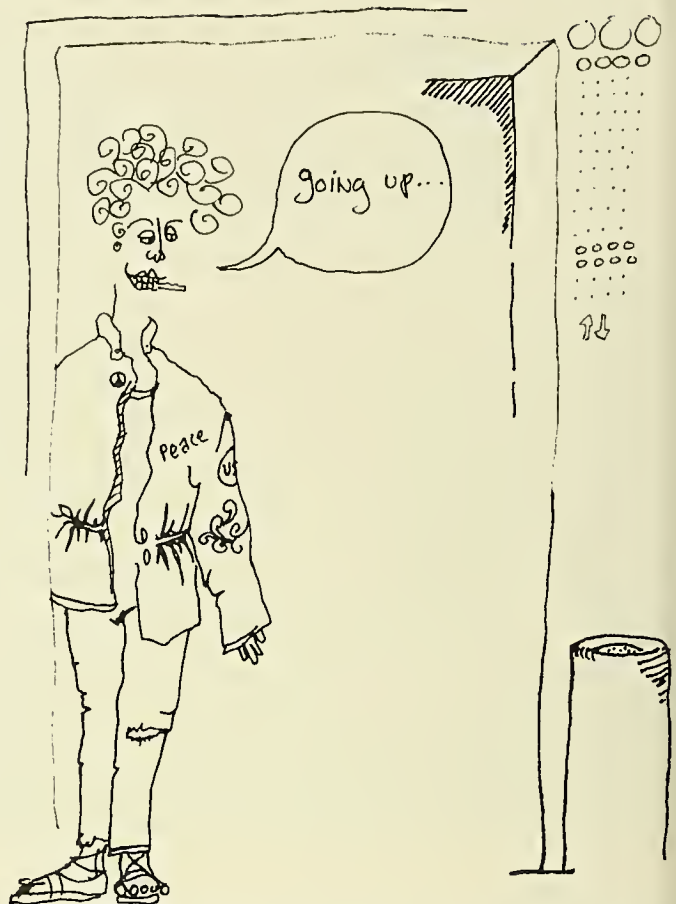 going up...
Peace
US